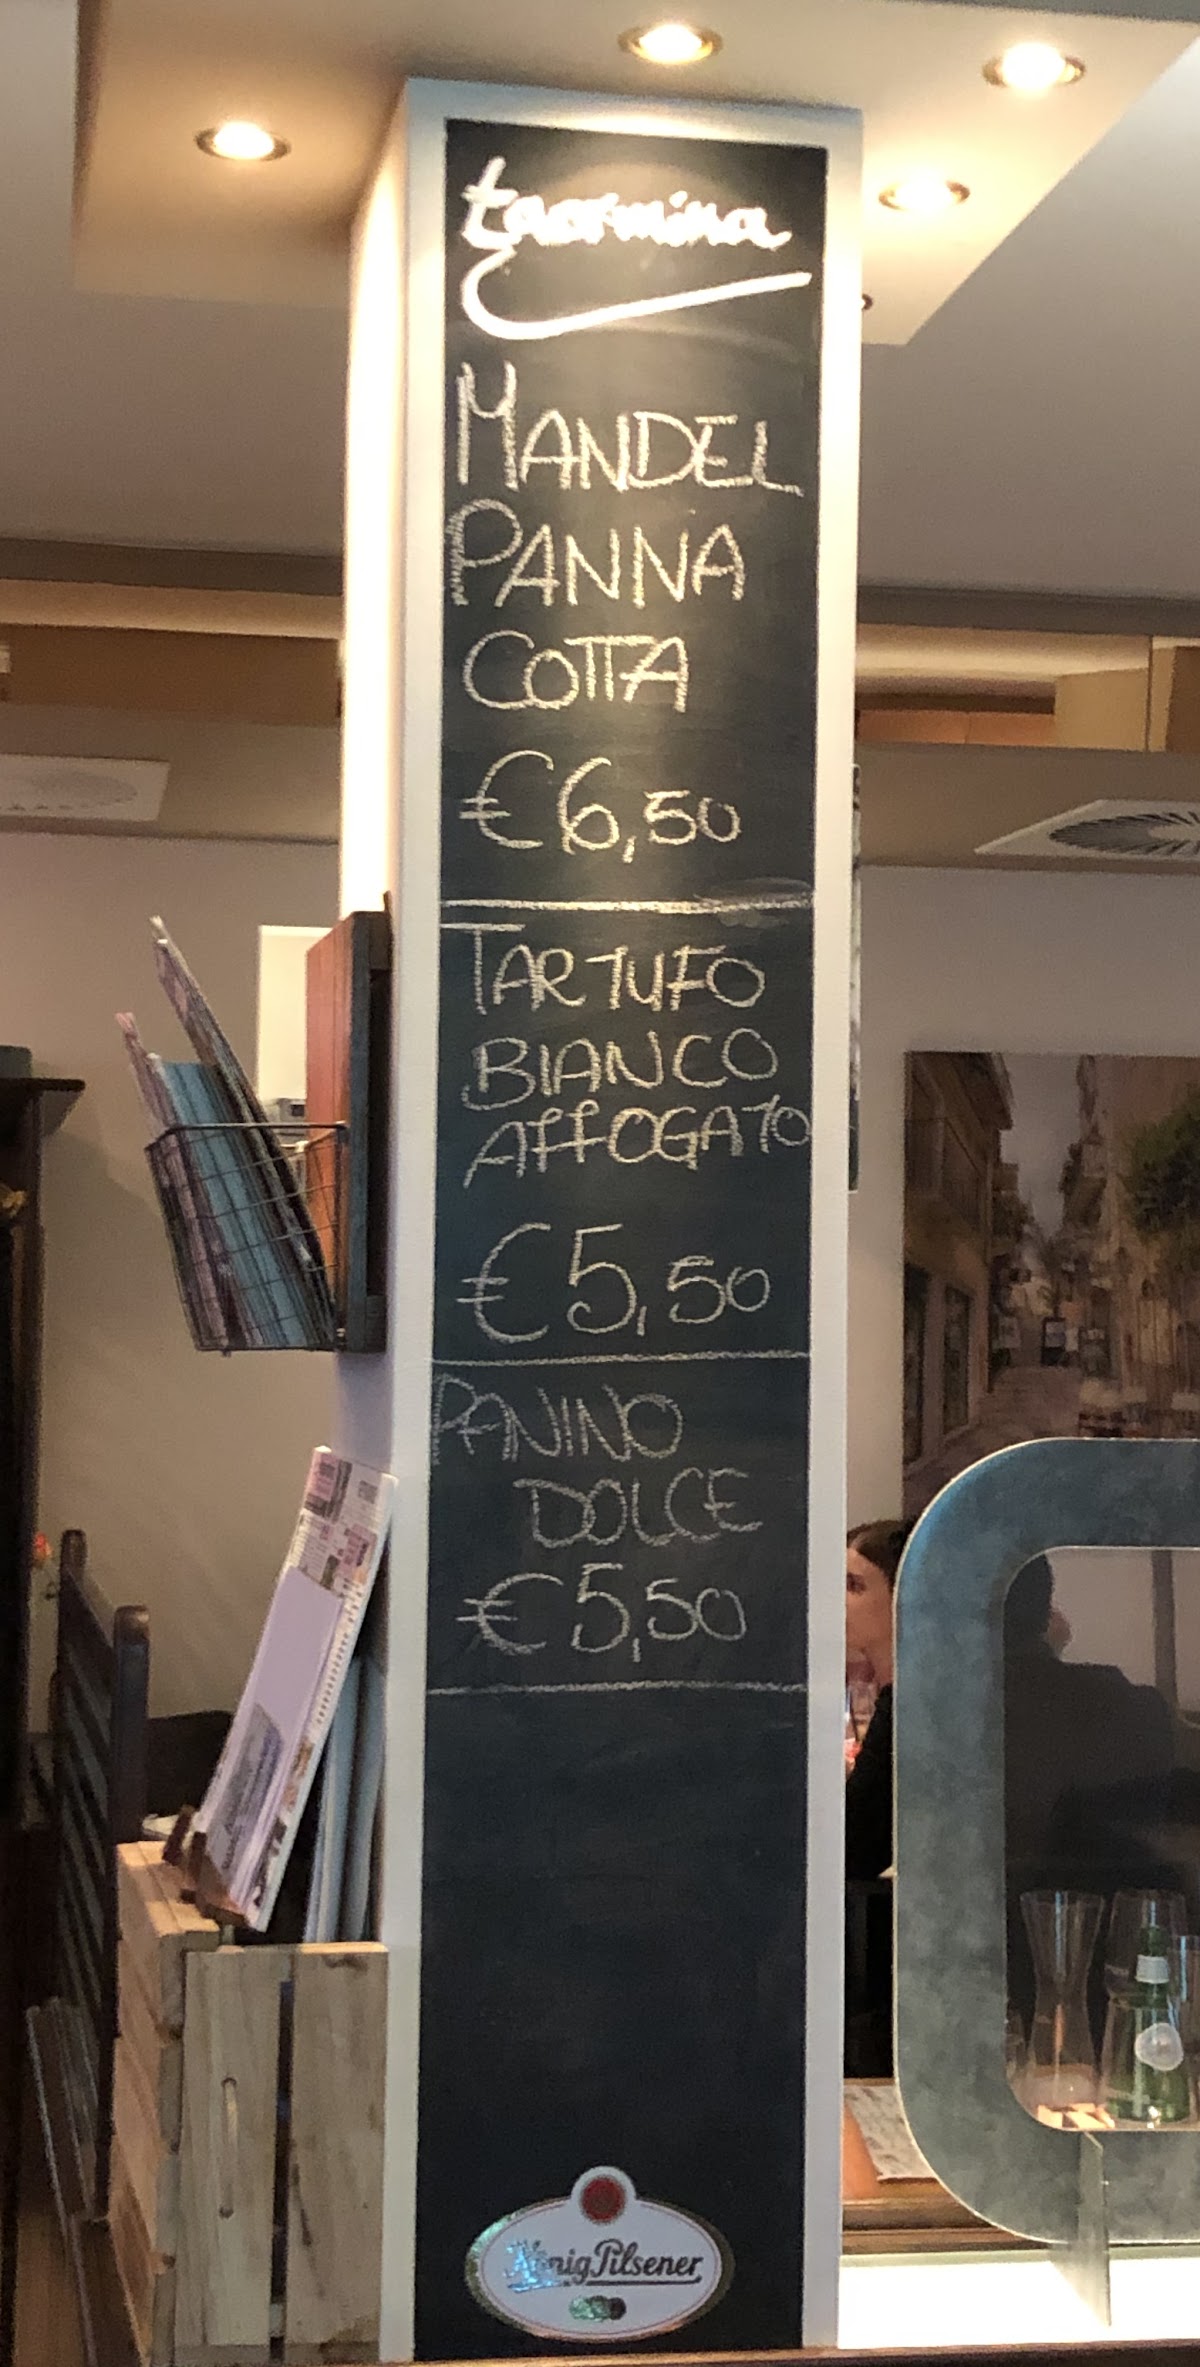 taormina
MANDEL
PANNA
COTTA
€6,50
TARTUFO
BIANCO
AFFOGATO
€5,50
PANINO
DOLCE
€5,50
König Pilsener